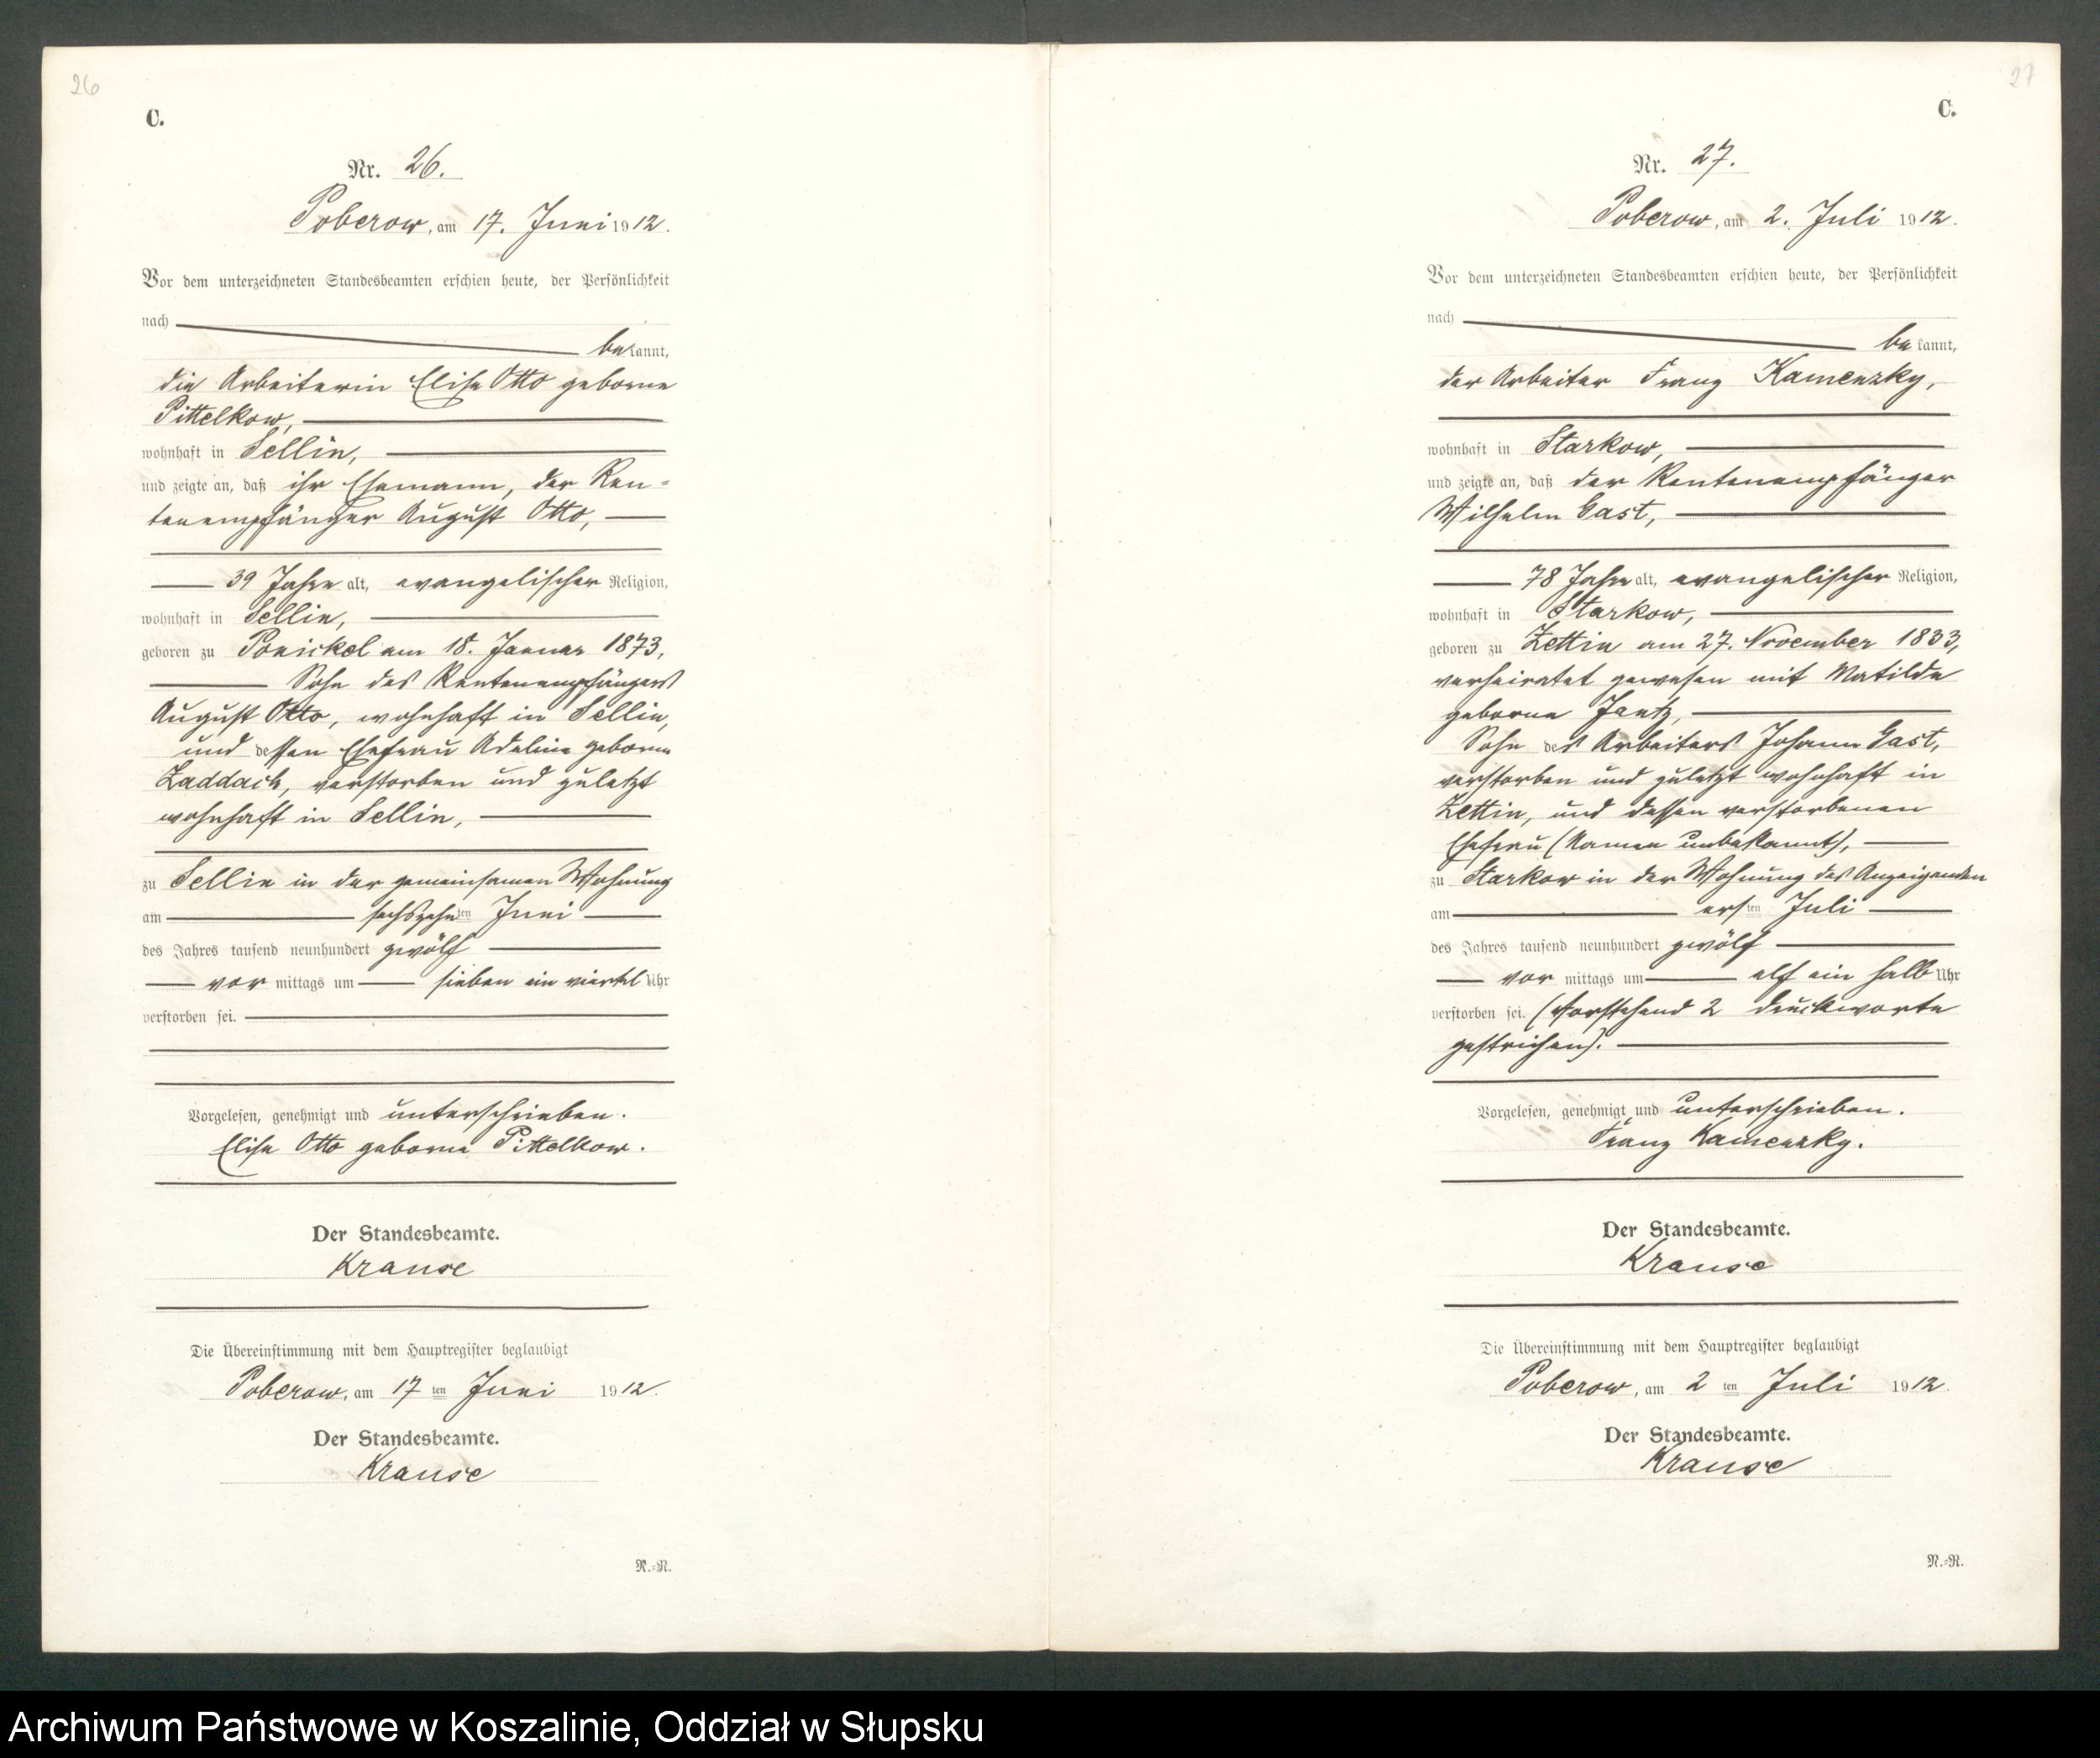 26
C.
Nr. 26.
Poberow, am 17. Juni 1912.
Vor dem unterzeichneten Standesbeamten erschien heute, der Persönlichkeit
nach
bekannt,
die Arbeiterin Elise Otto geborne
Pittelkow,
wohnhaft in Sellin,
und zeigte an, daß ihr Ehemann, der Ren-
tenempfänger August Otto,
39 Jahre alt, evangelischer Religion,
wohnhaft in Sellin,
geboren zu Ponickel am 18. Januar 1873,
Sohn des Rentenempfängers
August Otto, wohnhaft in Sellin,
und dessen Ehefrau Adeline geborne
Zaddach, verstorben und zuletzt
wohnhaft in Sellin,
zu Sellin in der gemeinsamen Wohnung
am sechszehnten Juni
des Jahres tausend neunhundert zwölf
vor mittags um sieben ein viertel Uhr
verstorben sei.
Vorgelesen, genehmigt und unterschrieben.
Elise Otto geborne Pittelkow.
Der Standesbeamte.
Krause
Die Übereinstimmung mit dem Hauptregister beglaubigt
Poberow, am 17 ten Juni 1912.
Der Standesbeamte.
Krause
N.-R.
27
C.
Nr. 27.
Poberow, am 2. Juli 1912.
Vor dem unterzeichneten Standesbeamten erschien heute, der Persönlichkeit
nach
bekannt,
der Arbeiter Franz Kamenzky,
wohnhaft in Starkow,
und zeigte an, daß der Rentenempfänger
Wilhelm Gast,
78 Jahre alt, evangelischer Religion,
wohnhaft in Starkow,
geboren zu Zettin am 27. November 1833,
verheiratet gewesen mit Matilde
geborne Jantz,
Sohn des Arbeiters Johann Gast,
verstorben und zuletzt wohnhaft in
Zettin, und dessen verstorbenen
Ehefrau (Namen unbekannt),
zu Starkow in der Wohnung des Anzeigenden
am ersten Juli
des Jahres tausend neunhundert zwölf
vor mittags um elf ein halb Uhr
verstorben sei. (Vorstehend 2 Druckworte
gestrichen).
Vorgelesen, genehmigt und unterschrieben.
Franz Kamenzky.
Der Standesbeamte.
Krause
Die Übereinstimmung mit dem Hauptregister beglaubigt
Poberow, am 2 ten Juli 1912.
Der Standesbeamte.
Krause
N.-R.
Archiwum Państwowe w Koszalinie, Oddział w Słupsku